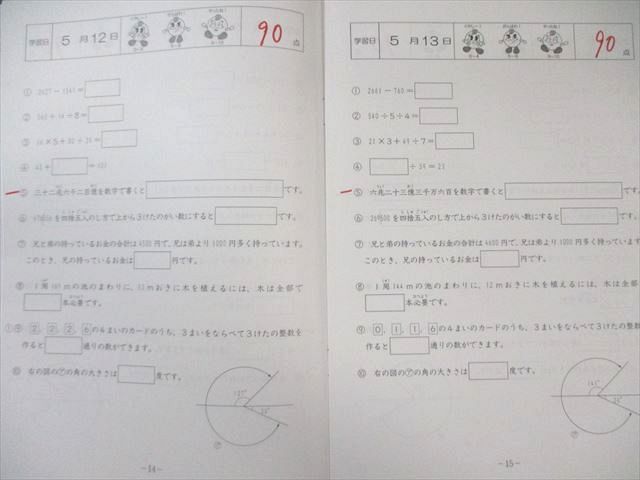 学習日 5月12日 90点
① 2627－1241＝
②
③
④
⑤ 三十二兆六千二百億を数字で書くと です。
⑥ を四捨五入のし方で上から3けたのがい数にすると です。
⑦ 兄と弟の持っているお金の合計は4500円で、兄は弟より1000円多く持っています。
このとき、兄の持っているお金は 円です。
⑧ 1周 mの池のまわりに、12mおきに木を植えるには、木は全部で
本必要です。
⑨ 2, 2, 2, 6の4まいのカードのうち、3まいをならべて3けたの整数を
作ると 通りの数ができます。
⑩ 右の図の㋐の角の大きさは 度です。
㋐
－14－
学習日 5月13日 90点
① 2661－760＝
② 540÷5÷4＝
③ 21×3＋49÷7＝
④ ÷39＝23
⑤ 六兆二十三億三千万六百を数字で書くと です。
⑥ を四捨五入のし方で上から3けたのがい数にすると です。
⑦ 兄と弟の持っているお金の合計は4600円で、兄は弟より1000円多く持っています。
このとき、兄の持っているお金は 円です。
⑧ 1周144mの池のまわりに、12mおきに木を植えるには、木は全部で
本必要です。
⑨ 0, 1, 1, 6の4まいのカードのうち、3まいをならべて3けたの整数を
作ると 通りの数ができます。
⑩ 右の図の㋐の角の大きさは 度です。
㋐
－15－